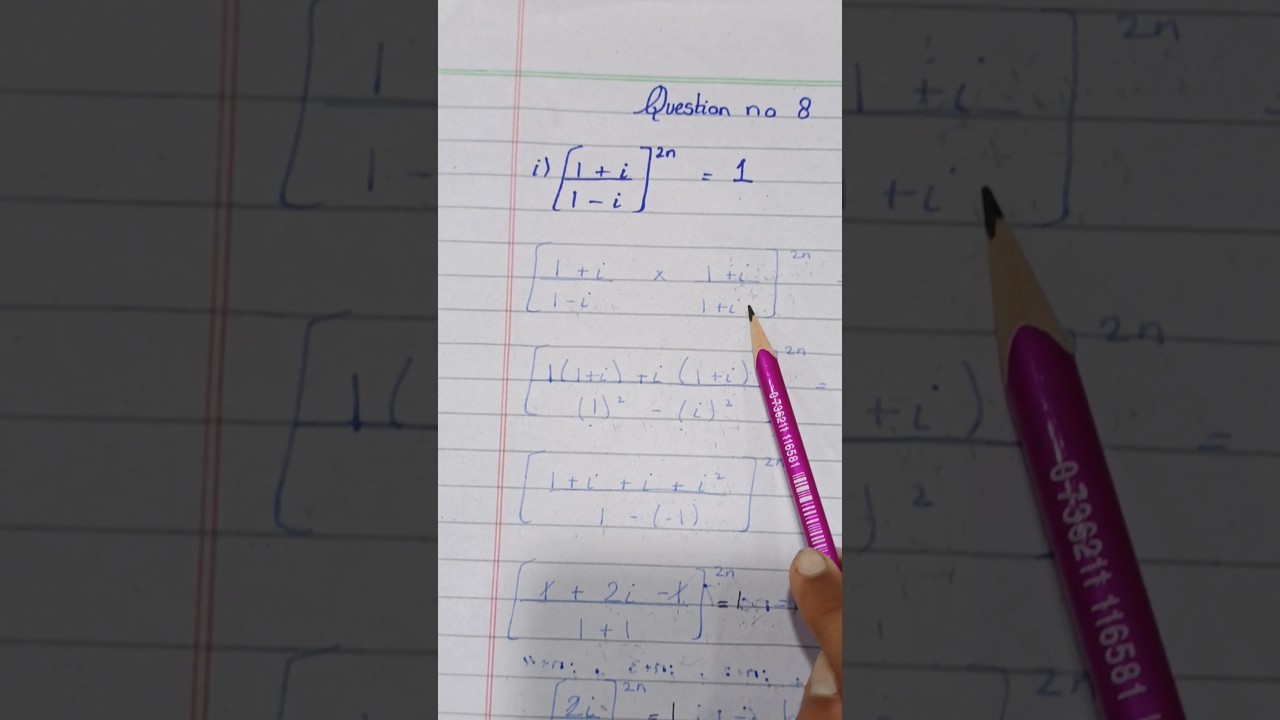 Question no 8
i) [1 + i / 1 - i]^2n = 1
[1 + i / 1 - i × 1 + i / 1 + i]^2n
[1(1+i) + i (1+i) / (1)² - (i)²]^2n =
[1 + i + i + i² / 1 - (-1)]^2n
[1 + 2i - 1 / 1 + 1]^2n =
[2i]^2n =
0736211 116581